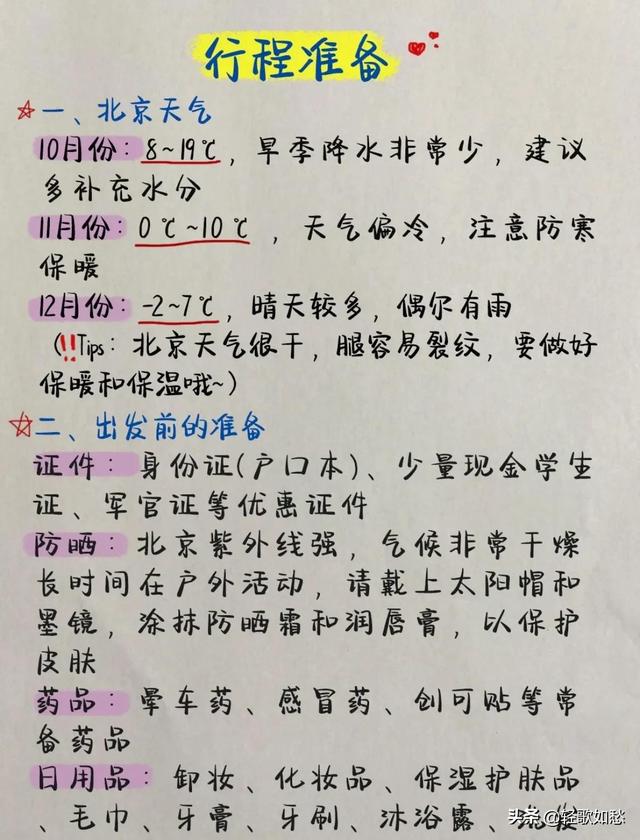 行程准备
一、北京天气
10月份：8~19℃，旱季降水非常少，建议
多补充水分
11月份：0℃~10℃，天气偏冷，注意防寒
保暖
12月份：-2~7℃，晴天较多，偶尔有雨
（!!Tips：北京天气很干，腿容易裂纹，要做好
保暖和保温哦~）
二、出发前的准备
证件：身份证(户口本)、少量现金学生
证、军官证等优惠证件
防晒：北京紫外线强，气候非常干燥
长时间在户外活动，请戴上太阳帽和
墨镜，涂抹防晒霜和润唇膏，以保护
皮肤
药品：晕车药、感冒药、创可贴等常
备药品
日用品：卸妆、化妆品、保湿护肤品
、毛巾、牙膏、牙刷、沐浴露、
头条 @轻歌如愁